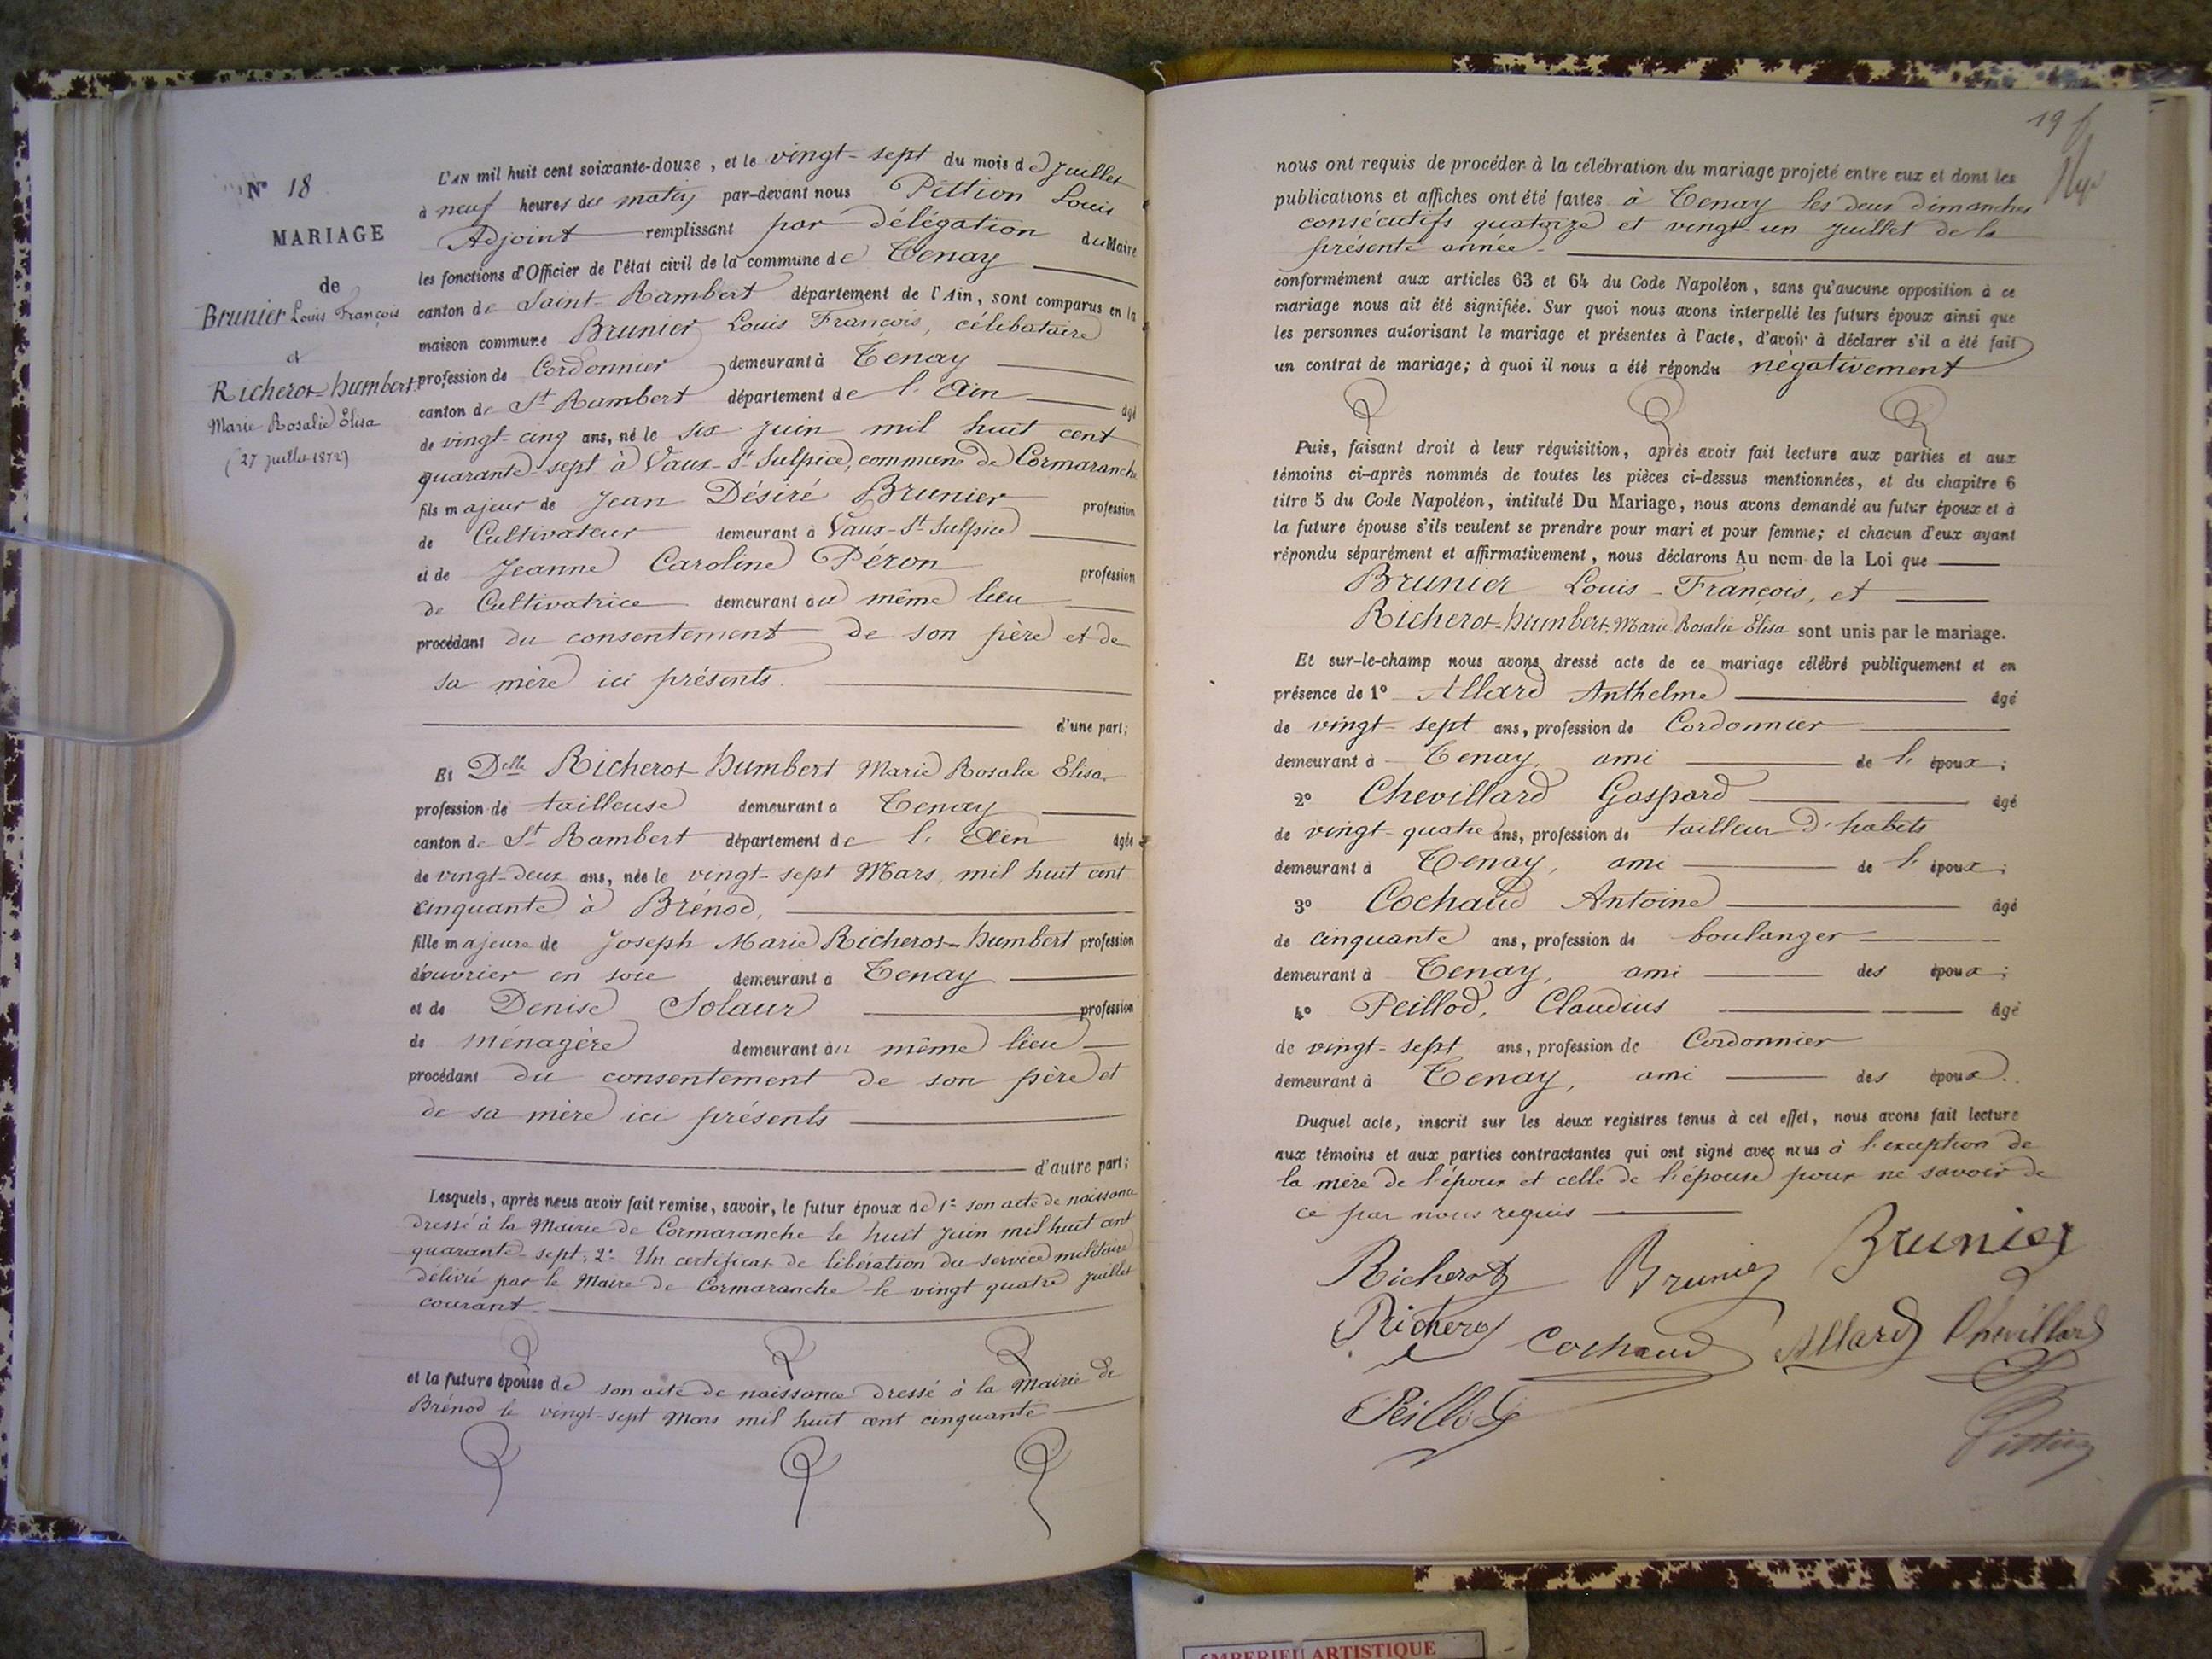 N° 18
MARIAGE
de
Brunier Louis François
et
Richerot-humbert
Marie Rosalie Elisa
(27 juillet 1872)
L'AN mil huit cent soixante-douze, et le vingt-sept du mois de Juillet
à neuf heures du matin par-devant nous Pittion Louis
Adjoint remplissant par délégation du Maire
les fonctions d'Officier de l'état civil de la commune de Tenay
canton de Saint-Rambert département de l'Ain, sont comparus en la
maison commune Brunier Louis François, célibataire
profession de Cordonnier demeurant à Tenay
canton de St Rambert département de l'Ain âgé
de vingt-cinq ans, né le six juin mil huit cent
quarante-sept à Vaux-St-Sulpice, commune de Cormaranche
fils majeur de Jean Désiré Brunier profession
de Cultivateur demeurant à Vaux-St-Sulpice
et de Jeanne Caroline Péron profession
de Cultivatrice demeurant au même lieu
procédant du consentement de son père et de
sa mère ici présents.
d'une part;
Et Delle Richerot humbert Marie Rosalie Elisa
profession de tailleuse demeurant à Tenay
canton de St Rambert département de l'Ain âgée
de vingt-deux ans, née le vingt-sept Mars, mil huit cent
cinquante à Brénod,
fille majeure de Joseph Marie Richerot-humbert profession
d'ouvrier en soie demeurant à Tenay
et de Denise Solaur profession
de ménagère demeurant au même lieu
procédant du consentement de son père et
de sa mère ici présents
d'autre part;
Lesquels, après nous avoir fait remise, savoir, le futur époux de 1° son acte de naissance
dressé à la Mairie de Cormaranche le huit juin mil huit cent
quarante-sept; 2° Un certificat de libération du service militaire
délivré par le Maire de Cormaranche le vingt quatre juillet
courant.
et la future épouse de son acte de naissance dressé à la Mairie de
Brénod le vingt-sept Mars mil huit cent cinquante
19
nous ont requis de procéder à la célébration du mariage projeté entre eux et dont les
publications et affiches ont été faites à Tenay les deux dimanches
consécutifs quatorze et vingt-un juillet de la
présente année.
conformément aux articles 63 et 64 du Code Napoléon, sans qu'aucune opposition à ce
mariage nous ait été signifiée. Sur quoi nous avons interpellé les futurs époux ainsi que
les personnes autorisant le mariage et présentes à l'acte, d'avoir à déclarer s'il a été fait
un contrat de mariage; à quoi il nous a été répondu négativement
Puis, faisant droit à leur réquisition, après avoir fait lecture aux parties et aux
témoins ci-après nommés de toutes les pièces ci-dessus mentionnées, et du chapitre 6
titre 5 du Code Napoléon, intitulé Du Mariage, nous avons demandé au futur époux et à
la future épouse s'ils veulent se prendre pour mari et pour femme; et chacun d'eux ayant
répondu séparément et affirmativement, nous déclarons Au nom de la Loi que
Brunier Louis-François, et
Richerot-humbert Marie Rosalie Elisa sont unis par le mariage.
Et sur-le-champ nous avons dressé acte de ce mariage célébré publiquement et en
présence de 1° Allard Anthelme âgé
de vingt-sept ans, profession de Cordonnier
demeurant à Tenay, ami de l'époux;
2° Chevillard Gaspard âgé
de vingt-quatre ans, profession de tailleur d'habits
demeurant à Tenay, ami de l'époux;
3° Cochaud Antoine âgé
de cinquante ans, profession de boulanger
demeurant à Tenay, ami des époux;
4° Peillod, Claudius âgé
de vingt-sept ans, profession de Cordonnier
demeurant à Tenay, ami des époux.
Duquel acte, inscrit sur les deux registres tenus à cet effet, nous avons fait lecture
aux témoins et aux parties contractantes qui ont signé avec nous à l'exception de
la mère de l'époux et celle de l'épouse pour ne savoir de
ce par nous requis
Richerot Brunier Brunier
Richerot Cochaud Allard Chevillard
Peillod Pittion
AMBERIEU ARTISTIQUE